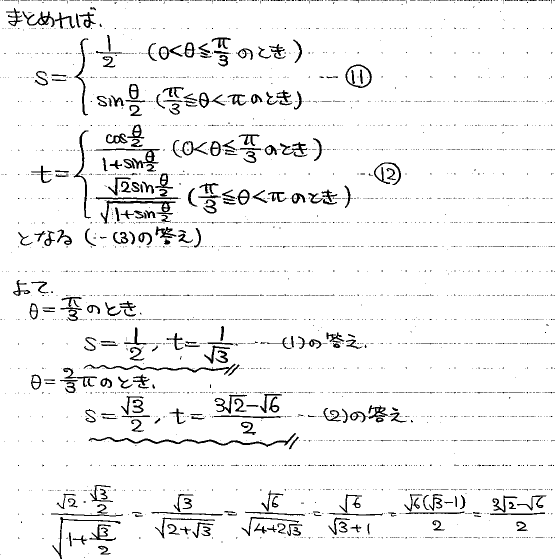 まとめれば、
s = { 1/2 (0<θ≦π/3 のとき)
sin θ/2 (π/3≦θ<πのとき) … ⑪
t = { cos θ/2 / (1+sin θ/2) (0<θ≦π/3 のとき)
√2 sin θ/2 / √(1+sin θ/2) (π/3≦θ<π のとき) … ⑫
となる (…(3)の答え)
よって、
θ=π/3 のとき、
s=1/2, t=1/√3 …(1)の答え.
θ=2/3π のとき、
s=√3/2, t=(3√2-√6)/2 …(2)の答え.
(√2・√3/2)/√(1+√3/2) = √3/√(2+√3) = √6/√(4+2√3) = √6/(√3+1) = √6(√3-1)/2 = (3√2-√6)/2